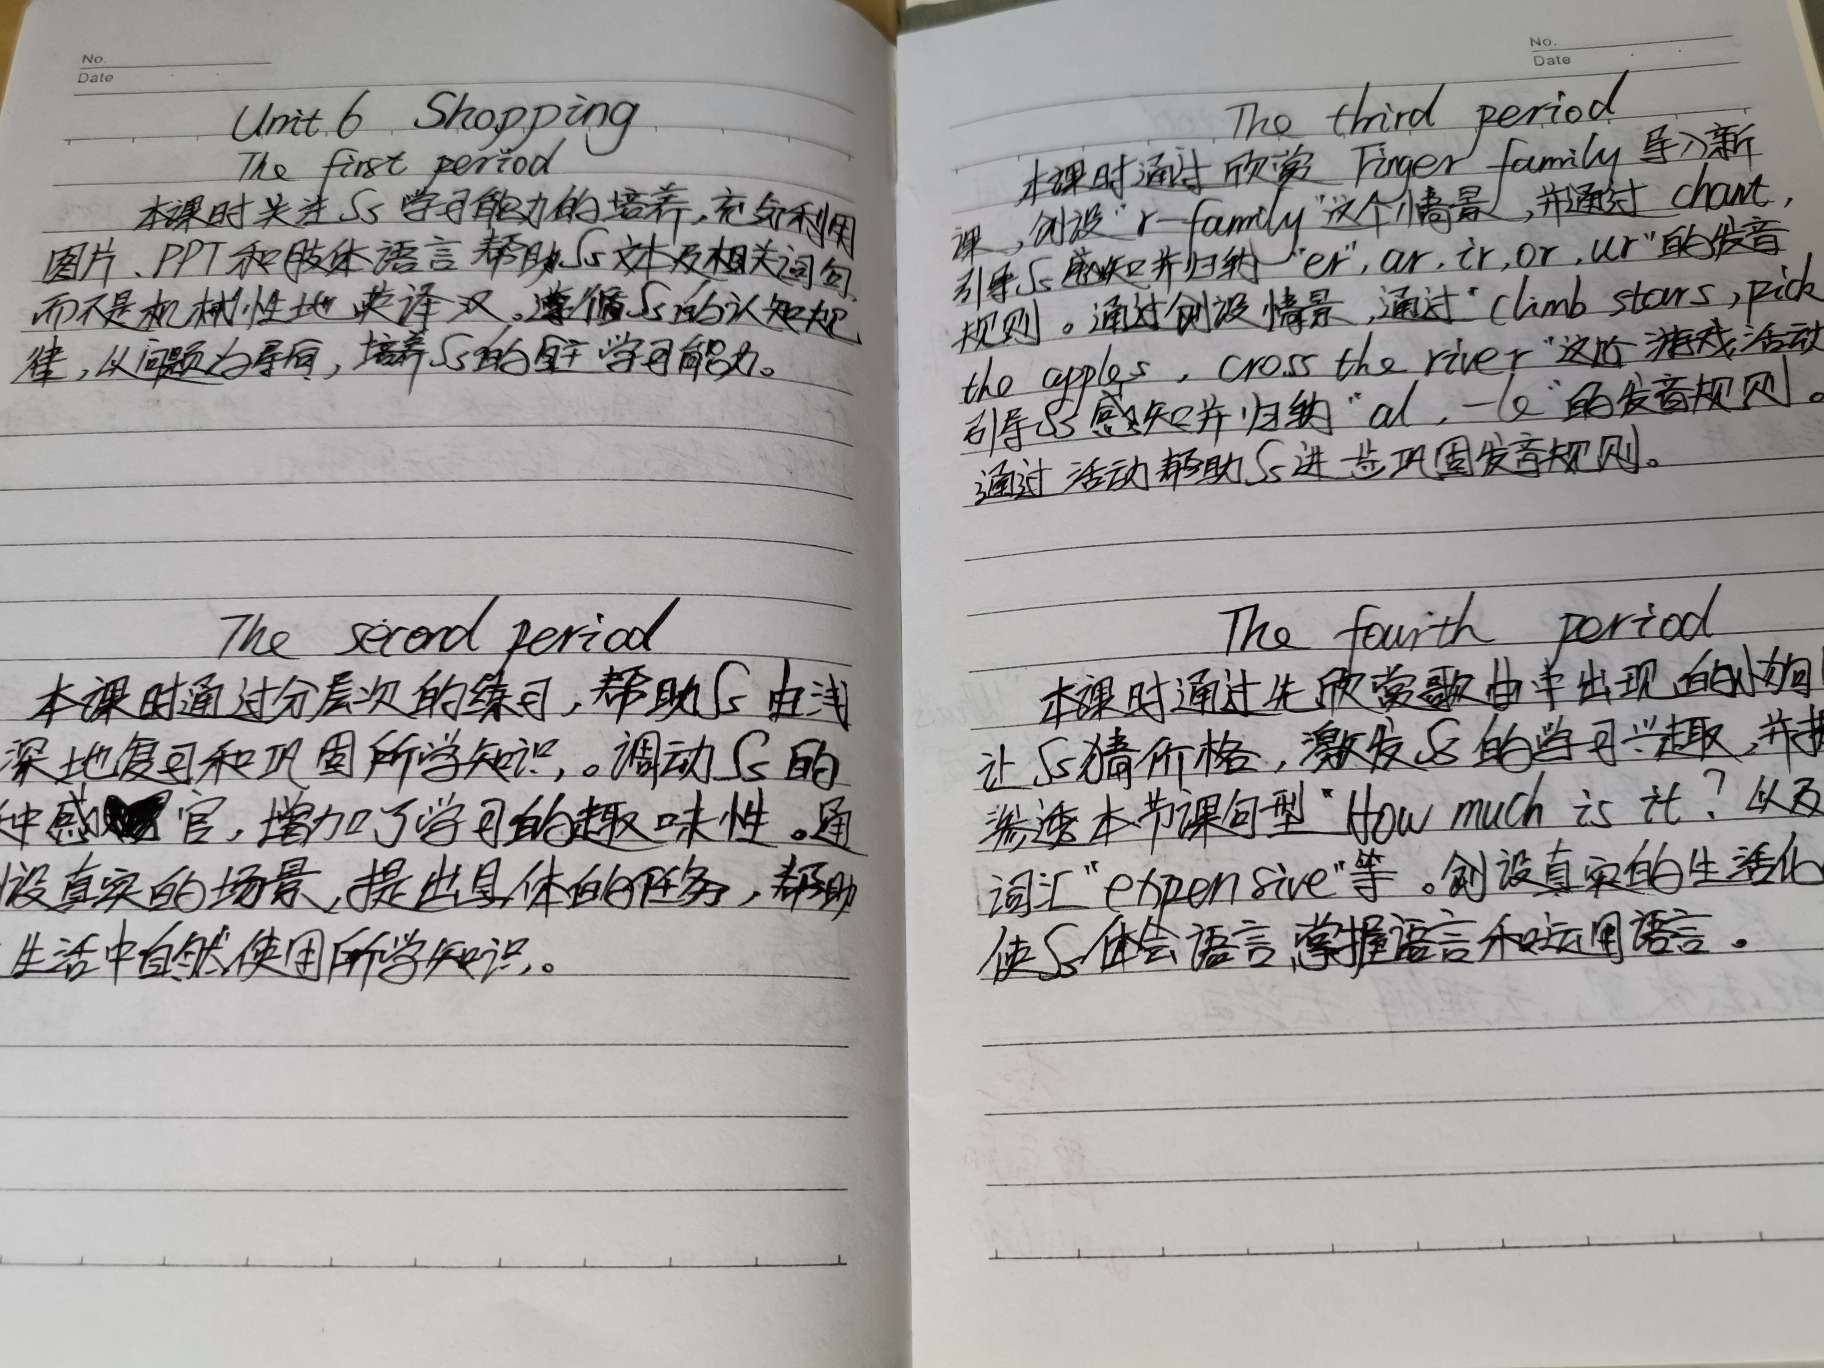 No.
Date
Unit 6 Shopping
The first period
本课时关注Ss学习能力的培养,充分利用
图片、PPT和肢体语言帮助Ss文本及相关词句,
而不是机械性地英译汉。遵循Ss的认知规
律,从问题为导向,培养Ss的自主学习能力。
The second period
本课时通过分层次的练习,帮助Ss由浅
深地复习和巩固所学知识,。调动Ss的
种感官,增加了学习的趣味性。通
设真实的场景,提出具体的任务,帮助
生活中自然使用所学知识。
No.
Date
The third period
本课时通过欣赏 Finger family 导入新
课,创设"r-family"这个情景,并通过 chant,
引导Ss感知并归纳"er", ar, ir, or, ur"的发音
规则。通过创设情景,通过"climb stars, pick
the apples, cross the river"这个游戏活动
引导Ss感知并归纳"al, -le"的发音规则。
通过活动帮助Ss进步巩固发音规则。
The fourth period
本课时通过先欣赏歌曲中出现的
让Ss猜价格,激发Ss的学习兴趣,并
渗透本节课句型"How much is it? 以及
词汇"expensive"等。创设真实的生活化
使Ss体会语言,掌握语言和运用语言。